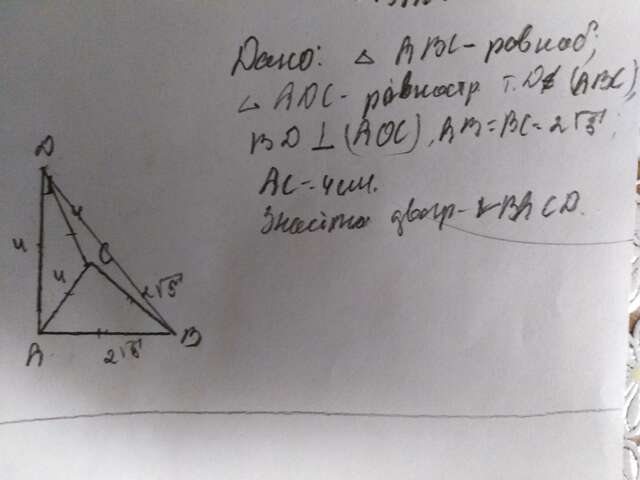 Дано: △ ABC - равноб;
△ ADC - равностр т. D∉ (ABC),
BD ⊥ (ADC), AB = BC = 2√5;
AC = 4 см.
двугр BACD.
D
4
4
4
C
2√5
A
2√5
B